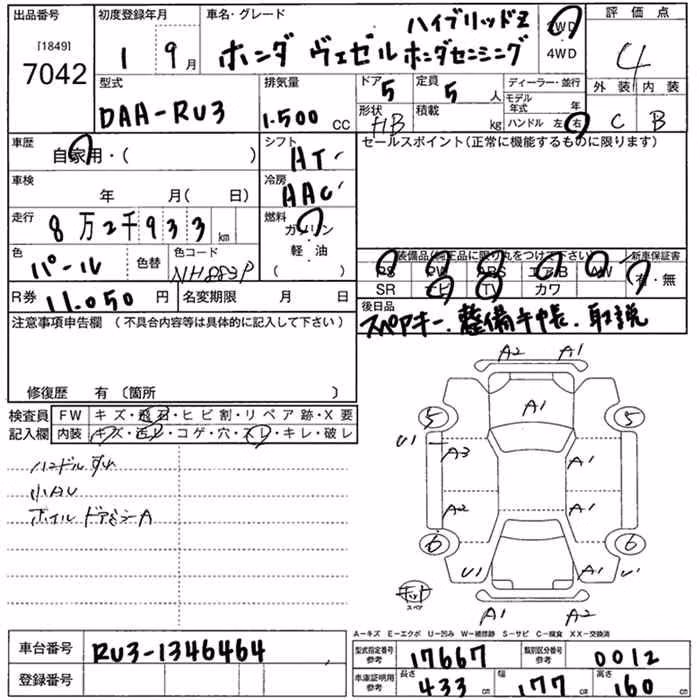 出品番号 初度登録年月 車名・グレード 評価点
[1849]
7042
1 9月
ホンダ ヴェゼル ハイブリッドZ ホンダセンシング
2WD
4WD
4
外装 内装
C B
型式 排気量 ドア 定員 ディーラー・並行
DAA-RU3 1.500 CC 5 5人
モデル年式 年
形状 積載
HB kg ハンドル 左 右
車歴 シフト セールスポイント(正常に機能するものに限ります)
自家用・( ) AT
車検 冷房
年 月(日) AAC
走行 燃料
8万2千933km ガソリン
軽・油
( )
色 色替 色コード
パール NH883P
装備品(純正品に限り丸をつけて下さい) 新車保証書
PS PW ABS エアB AW 有・無
SR ナビ TV カワ
R券 11.050円 名変期限 月 日
後日品
スペアキー.整備手帳.取説
注意事項申告欄 (不具合内容等は具体的に記入して下さい)
修復歴 有 〔箇所 〕
検査員 FW キズ・飛石・ヒビ割・リペア跡・X要
記入欄 内装 キズ・汚レ・コゲ・穴・スレ・キレ・破レ
ハンドルすれ
小AU
ホイル
A2 A1
A1
5 5
U1 A3 A1
A2 A1
6 6
U1 A1 U1
スペア
A1 A2
A-キズ E-エクボ U-凹み W-補修跡 S-サビ C-腐食 XX-交換済
車台番号 RU3-1346464
型式指定番号 参考 17667 類別区分番号 参考 0012
登録番号
車庫証明用 参考 長さ 433cm 幅 177cm 高さ 160cm